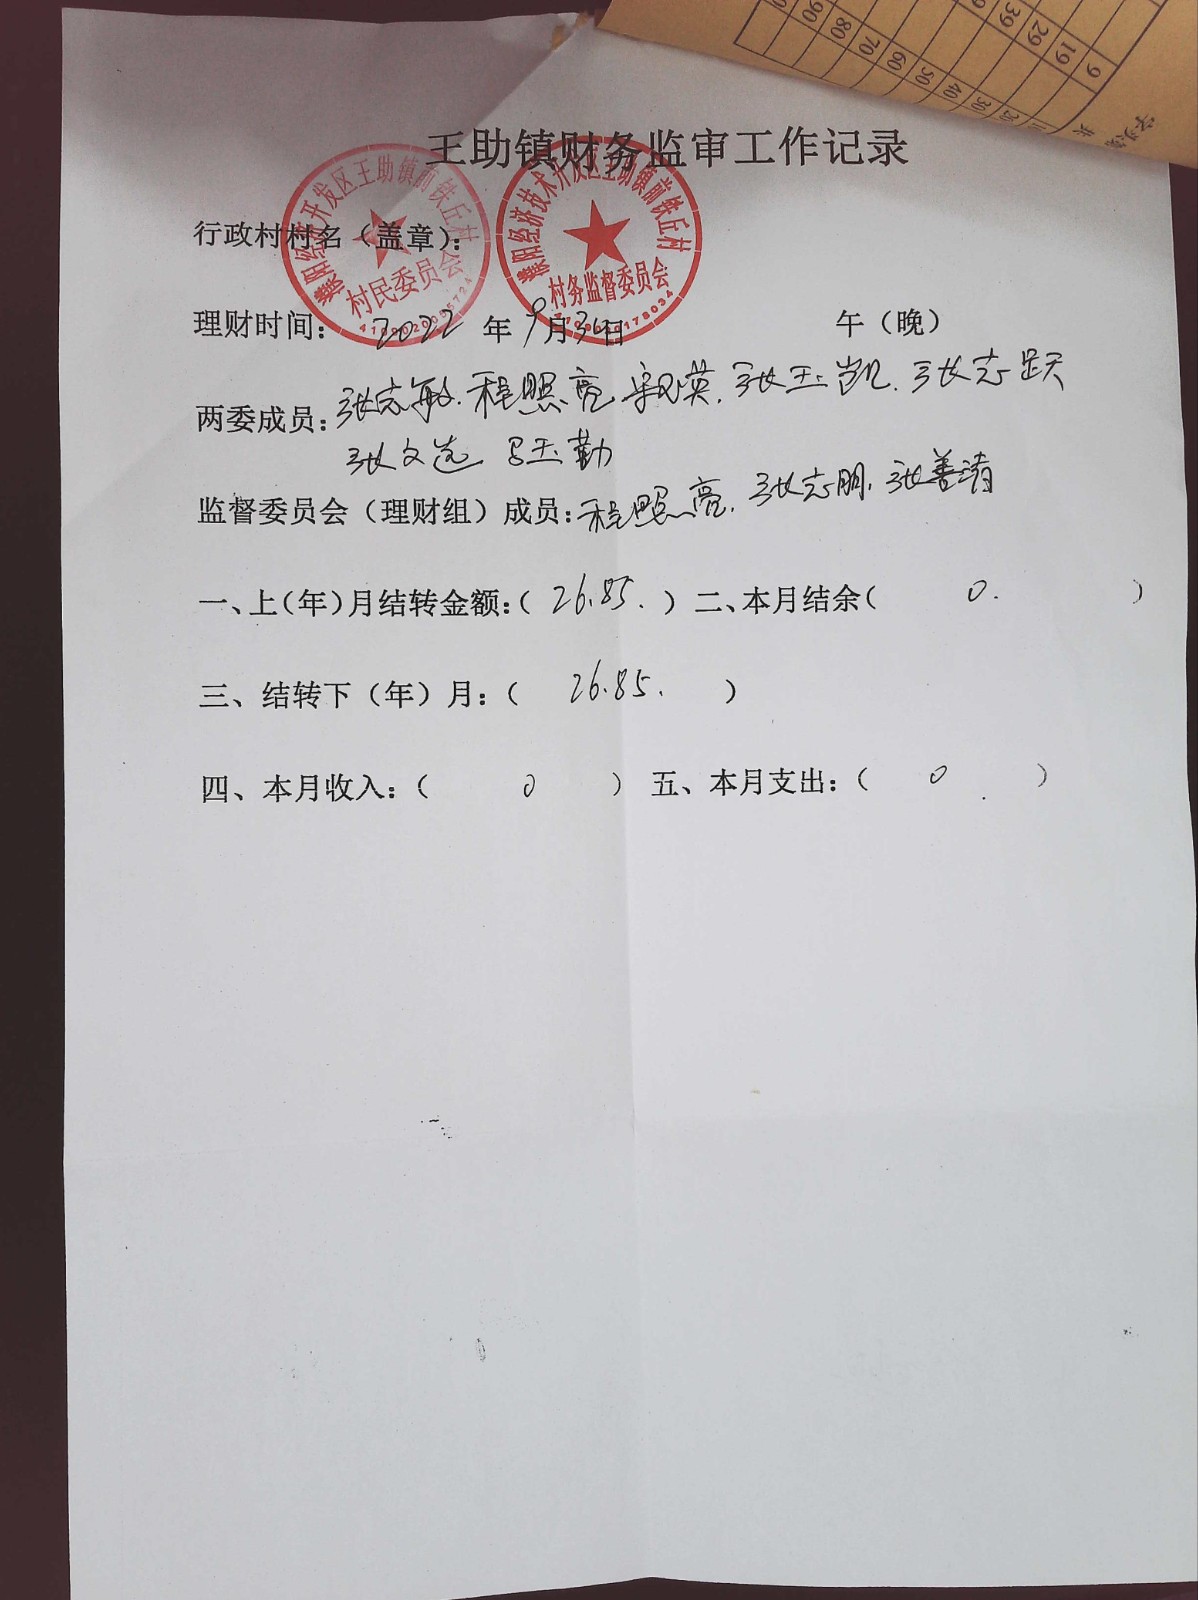 王助镇财务监审工作记录
行政村村名（盖章）：
濮阳经济开发区王助镇前铁丘村
村民委员会
濮阳经济技术开发区王助镇前铁丘村
村务监督委员会
理财时间：2022年9月30日 午（晚）
两委成员：张志敏.程照亮 张玉凯.张志跃
张文选 玉勤
监督委员会（理财组）成员：程照亮.张志朋.张善清
一、上（年）月结转金额：（26.85.）二、本月结余（0.）
三、结转下（年）月：（26.85.）
四、本月收入：（0）五、本月支出：（0）
9
19
29
39
20
30
40
50
60
70
80
90
共